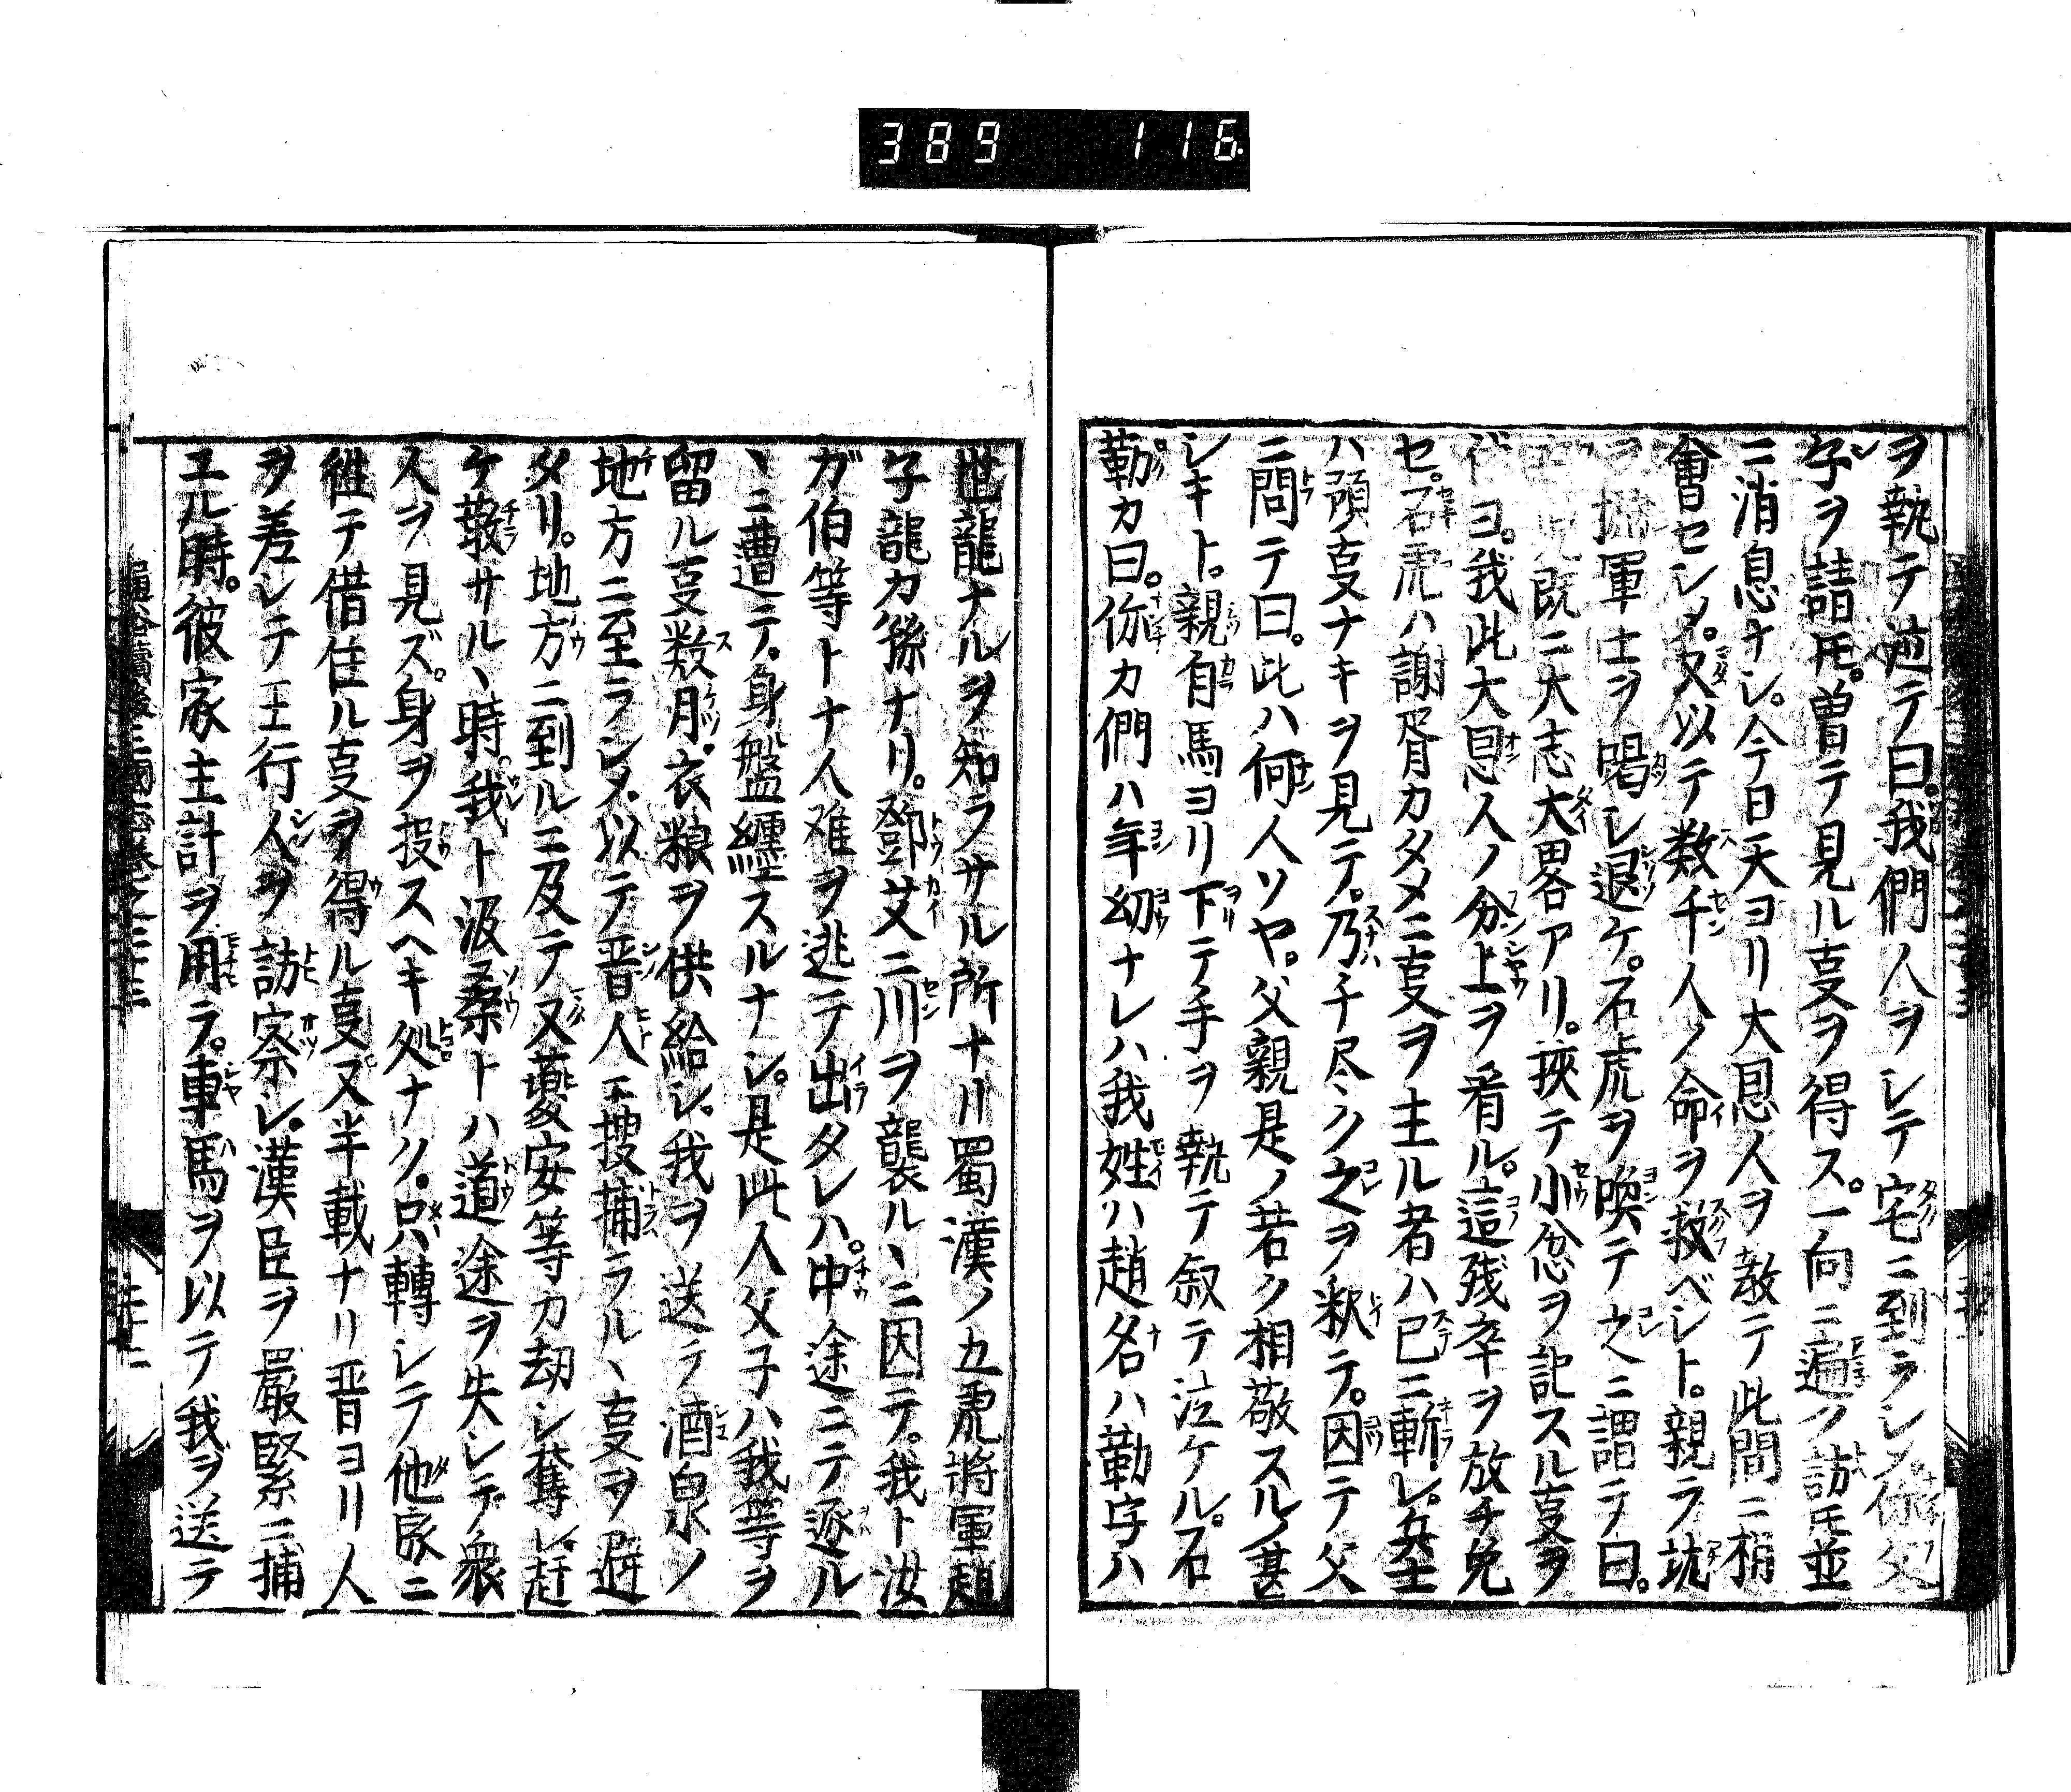 389 116
ヲ執テ泣テ曰。我們人ヲシテ宅ニ到ラシメ你父
子ヲ請氏。曽テ見ル叓ヲ得ス。一向ニ遍ク訪氏並
ニ消息ナシ。今日天ヨリ大恩人ヲ教テ此間ニ相
會セシメ。又以テ数千人ノ命ヲ救ベシト。親ラ
軍士ヲ喝シ退ケ。石虎ヲ喚テ之ニ謂テ曰。
既ニ大志大畧アリ。挾テ小忿ヲ記スル叓ヲ
ヨ。我此大恩人ノ分上ヲ看ル。這残卒ヲ放チ免
セ。石虎ハ謝胥カタメニ叓ヲ主ル者ハ已ニ斬レ。兵士
ハ預叓ナキヲ見テ。乃チ尽ク之ヲ釈テ。因テ父
ニ問テ曰。此ハ何人ソヤ。父親是ノ若ク相敬スルノ甚
シキト。親自馬ヨリ下テ手ヲ執テ叙テ泣ケル。石
勒カ曰。你カ們ハ年幼ナレハ我姓ハ趙名ハ勒字ハ
世龍ナルヲ知ラサル所ナリ蜀漢ノ五虎將軍趙
子龍カ孫ナリ。鄧艾ニ川ヲ襲ル丶ニ因テ。我ト汝
ガ伯等トナ人难ヲ逃テ出タレハ。中途ニテ逐ル
丶ニ遭テ。身盤纏スルナシ。是此人父子ハ我等ヲ
留ル叓数月。衣粮ヲ供給シ。我ヲ送テ酒泉ノ
地方ニ至ラシメ。以テ晋人ニ捜捕ラル丶叓ヲ避
タリ。地方ニ到ルニ及テ又夔安等カ劫シ奪レ。赶
ケ散サル丶時。我ト汲桑トハ道途ヲ失シテ衆
人ヲ見ズ。身ヲ投スヘキ処ナク。只轉シテ他家ニ
徃テ借住ル叓ヲ得ル叓又半載ナリ晋ヨリ人
ヲ差シテ王行人ヲ訪察シ。漢臣ヲ嚴緊ニ捕
ユル時。彼家主計ヲ用ラ。車馬ヲ以テ我ヲ送テ